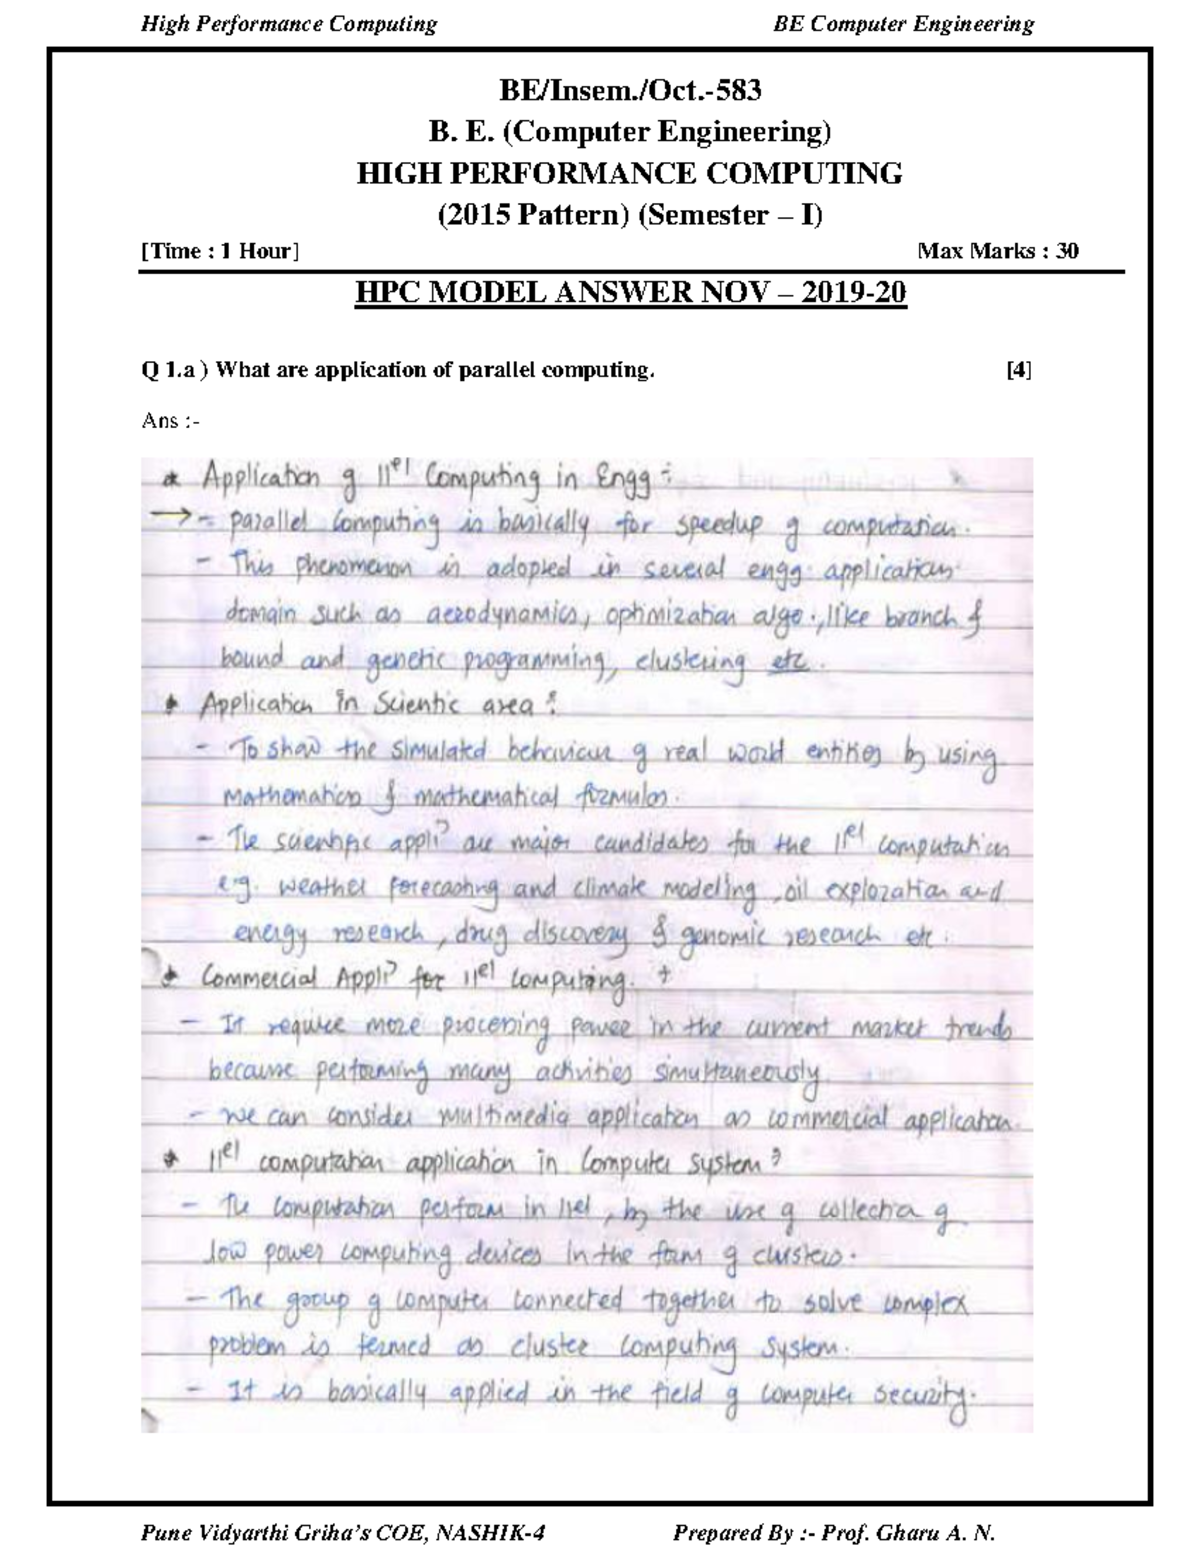 High Performance Computing BE Computer Engineering
BE/Insem./Oct.-583
B. E. (Computer Engineering)
HIGH PERFORMANCE COMPUTING
(2015 Pattern) (Semester – I)
[Time : 1 Hour] Max Marks : 30
HPC MODEL ANSWER NOV – 2019-20
Q 1.a ) What are application of parallel computing. [4]
Ans :-
* Application of 11el Computing in Engg :-
→ - parallel computing is basically for speedup of computation.
- This phenomenon is adopted in several engg. applications
domain such as aerodynamics, optimization algo., like branch &
bound and genetic programming, clustering etc.
* Application in Scientic area :
- To show the simulated behaviour of real world entities by using
mathematics & mathematical formulas.
- The scientific appln are major candidates for the 11el computation
e.g. weather forecasting and climate modeling, oil exploration and
energy research, drug discovery & genomic research etc.
* Commercial Appln for 11el computing. :-
- It require more processing power in the current market trends
because performing many activities simultaneously
- we can consider multimedia application as commercial application.
* 11el computation application in computer system :
- The computation perform in 11el, by the use of collection of
low power computing devices in the form of clusters.
- The group of computer connected together to solve complex
problem is termed as cluster computing system.
- It is basically applied in the field of computer security.
Pune Vidyarthi Griha's COE, NASHIK-4 Prepared By :- Prof. Gharu A. N.